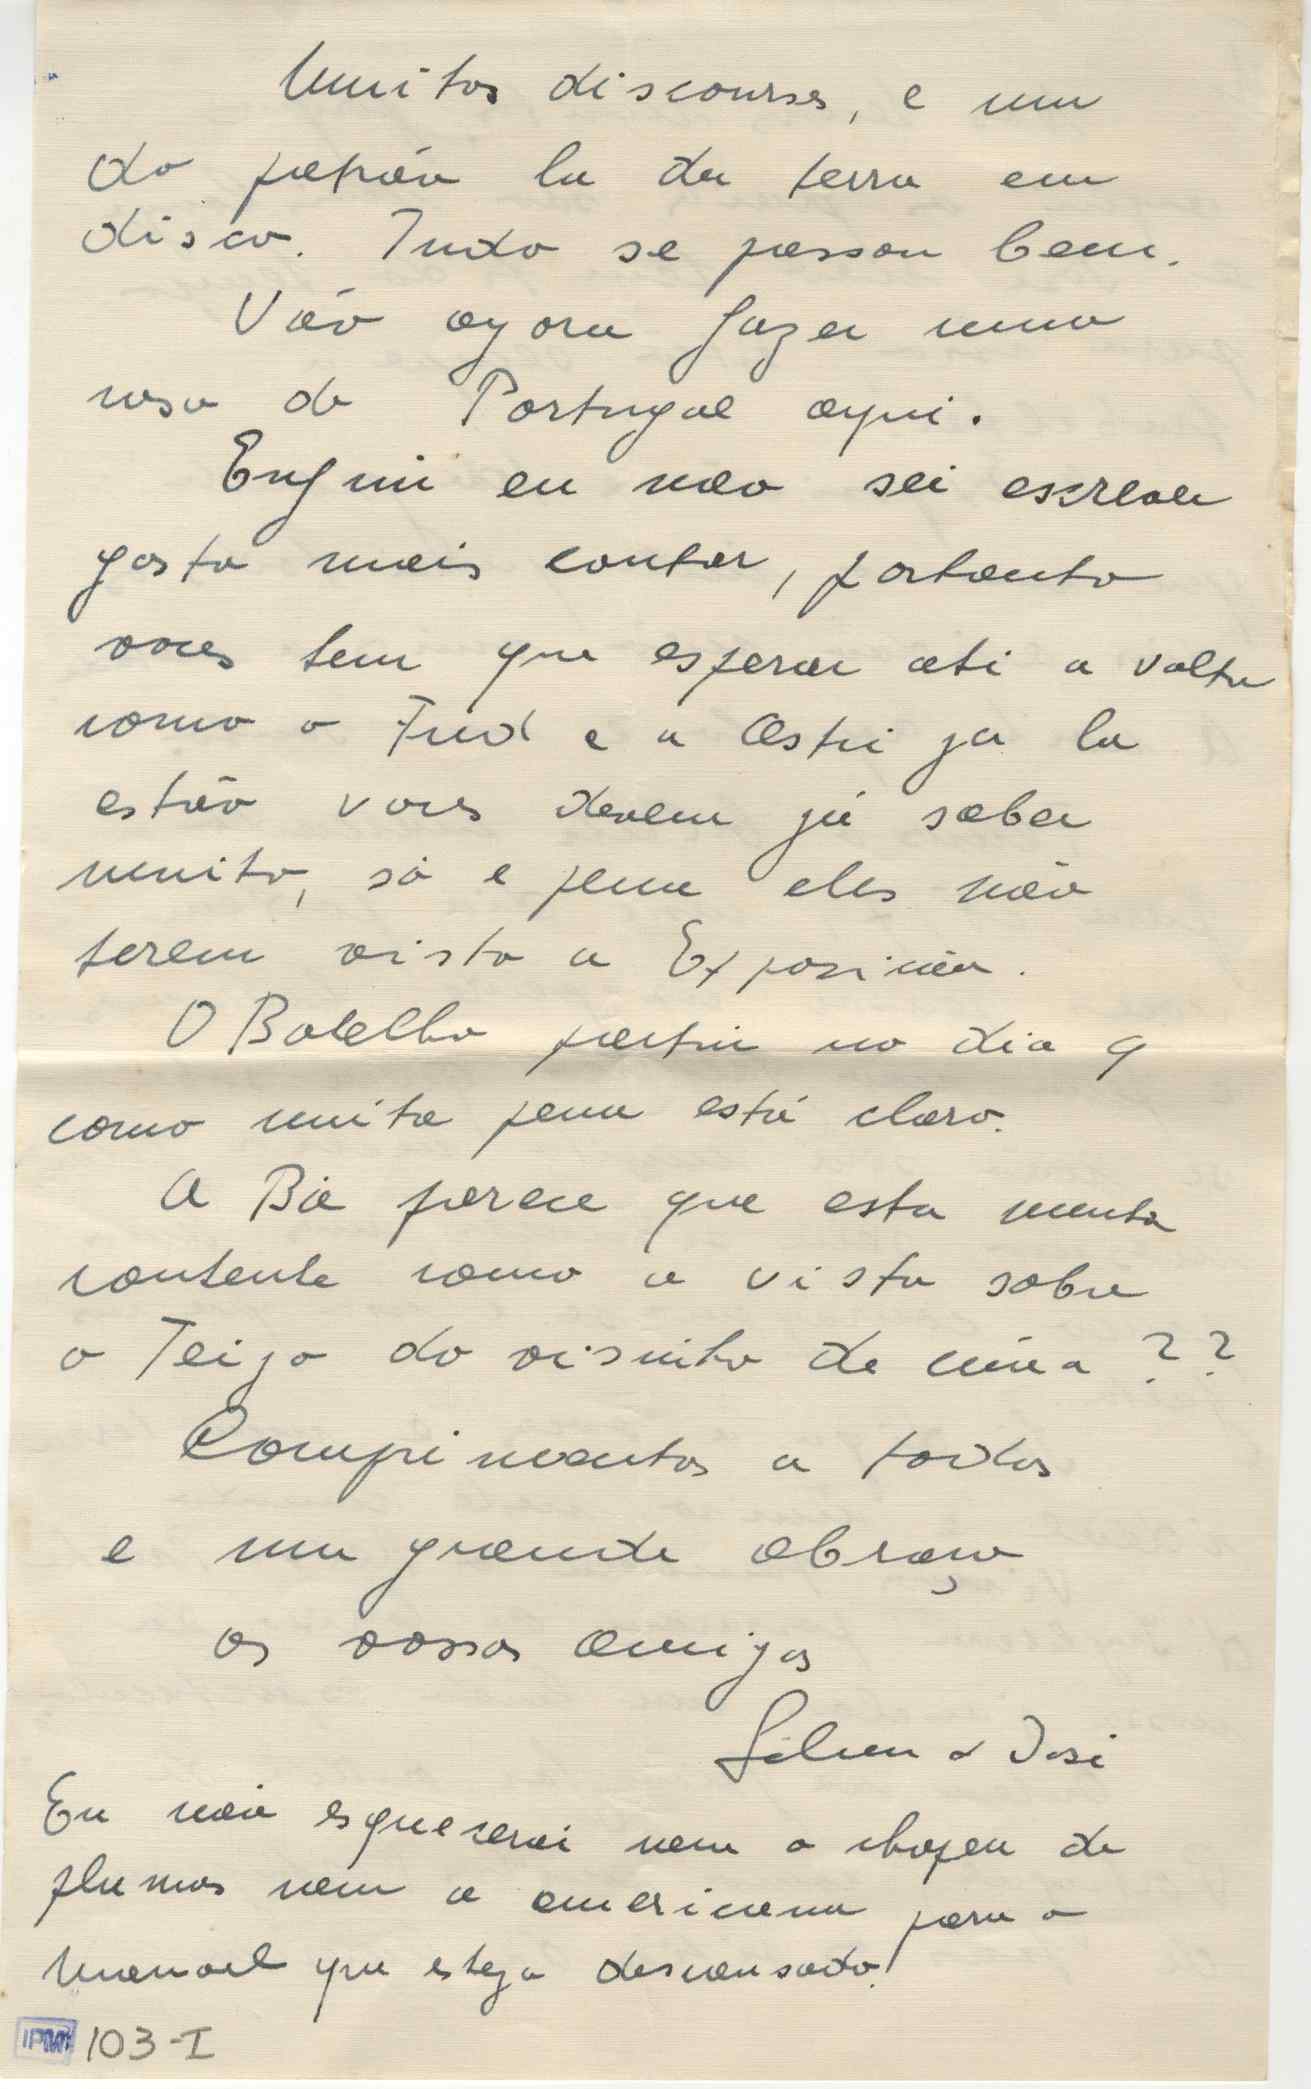 Muitos discourses, e um
do patrão la da terra em
disco. Tudo se passou bem.
Vão agora fazer uma
rosa do Portugal aqui.
Enfim eu nao sei escrever
gosto mais contar, portanto
voces tem que esperar ate a volta
como o Fred e a Astri ja la
estão voces devem já saber
muito, só e pena eles não
terem visto a Exposicão.
O Botelho partiu no dia 9
como muita pena está claro.
A Bia parece que esta muito
contente como a vista sobre
o Teijo do visinho de cima ??
Comprimentos a todos
e um grande abraço
os vossos amigos
& José
Eu não esquecerei nem o chapeu de
plumas nem a americana para o
Manoel que esteja descansado!
IPM 103-I